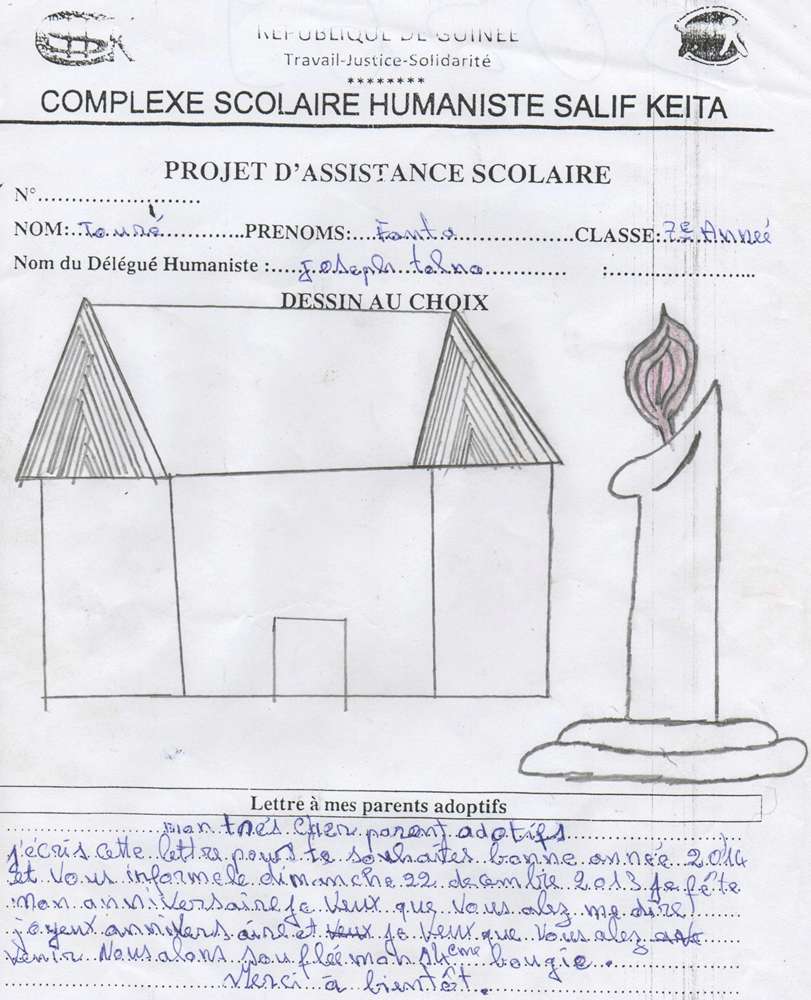 REPUBLIQUE DE GUINEE
Travail-Justice-Solidarité
********
COMPLEXE SCOLAIRE HUMANISTE SALIF KEITA
PROJET D'ASSISTANCE SCOLAIRE
N°..............................
NOM:..Touré..............PRENOMS:....Fanta.....................CLASSE:7e Anneé
Nom du Délégué Humaniste :.....Joseph tolno............... :........................
DESSIN AU CHOIX
Lettre à mes parents adoptifs
Mon trés cher parent adotifs
j'écris cette lettre pour te souhaites bonne année 2014
et vous informe le dimanche 22 decembre 2013 je fête
mon anniversaire je veux que vous alez me dire
joyeux anniversaire et veux je veux que vous alez
venir Nous alons souflée mon 14eme bougie.
Merci à bientôt.